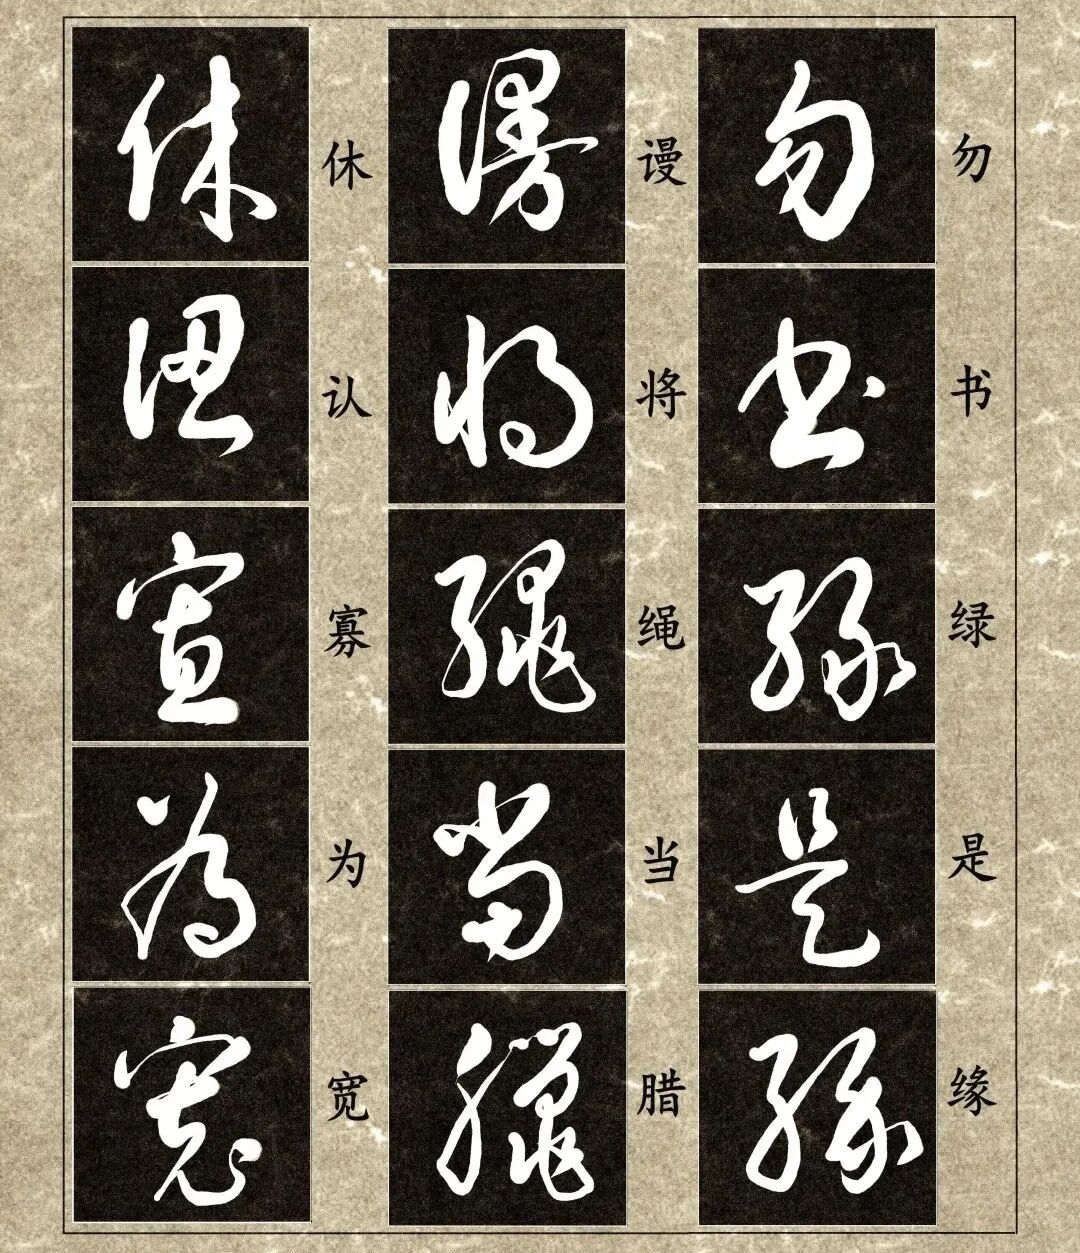 勿书绿是缘
勿書綠是緣
谩将绳当腊
謾將繩當臘
休认寡为宽
休認寡為寬